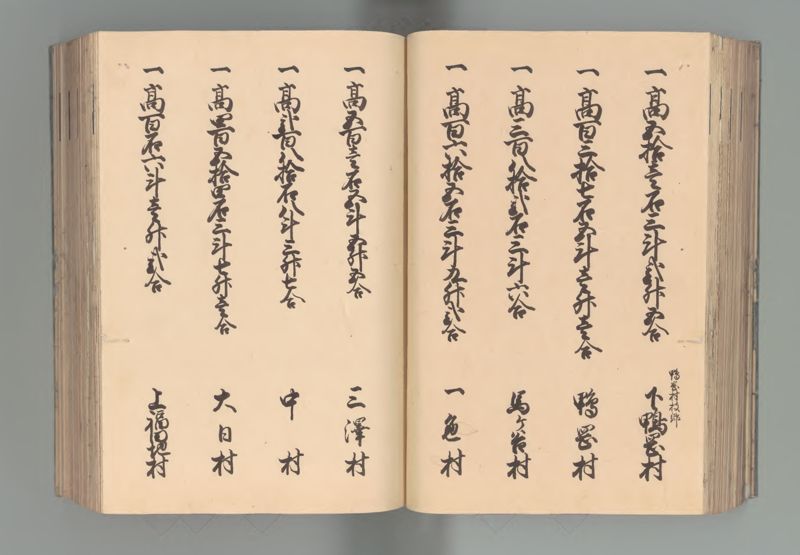 一高五拾壱石三斗弐升五合
鴨冨村枝郷
下鴨冨村
一高百二拾七石五斗壱升壱合
鴨冨村
一高三百八拾弐石三斗六合
馬ヶ谷村
一高百六拾五石三斗九升弐合
一色村
一高五百壱石五斗五升五合
三澤村
一高弐百八拾石八斗三升七合
中村
一高四百五拾四石三斗七升壱合
大日村
一高百石六斗壱升弐合
上福地村